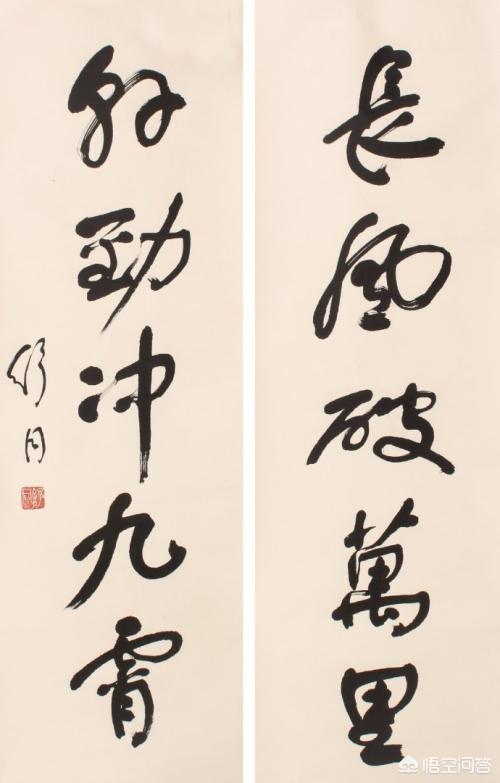 長風破萬里
幹勁冲九霄
舒同
悟空问答